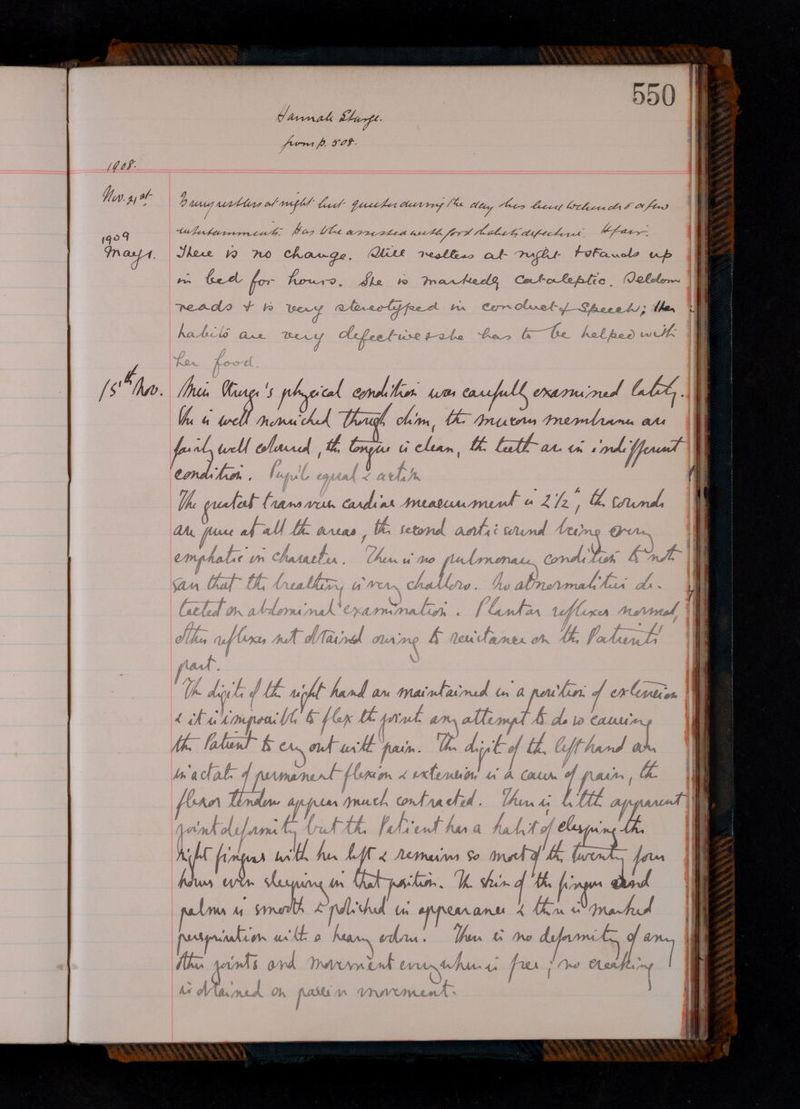 550
Hannah Sturge.
from p. 508.
1908.
Nov. 31st Is very restless at night but quieter during the day. has been to a few
entertainments. Has to be assisted with food & habits defective. H. Fair.
1909
May 1. There is no change. Still restless at night & stands up
in bed for hours. She is markedly cataleptic. Seldom
reads & is very stereotyped in conduct & speech; Her
habits are very defective & she has to be helped with
her food.
15th Nov. Miss Sturge's physical condition was carefully examined lately.
She is well nourished though slim, the mucous membranes are
fairly well coloured, the tongue is clean, the teeth are in indifferent
condition. Pupils equal & active
The greatest transverse cardiac measurement is 2½", the sounds
are pure at all the areas, the second aortic sound being very
emphatic in character. There is no pulmonary condition to note
save that the breathing is very shallow. No abnormalities de-
tected on abdominal examination. Plantar reflexes normal,
other reflexes not obtained owing to resistance on the Patient's
part.
The digits of the right hand are maintained in a position of extension
& it is impossible to flex the joints any attempt to do so causing
the Patient to cry out with pain. The digits of the left hand are
in a state of permanent flexion & extension is a cause of pain, the
flexor tendons appear much contracted. There is little apparent
joint deformity but the Patient has a habit of clasping the
right fingers with her left & remains so most of the twenty four
hours even sleeping in that position. The skin of the fingers and
palms is smooth & polished in appearance & there is marked
perspiration with a heavy odour. There is no deformity of any
other joints and movement everywhere is free; no creaking
is obtained on passive movement.